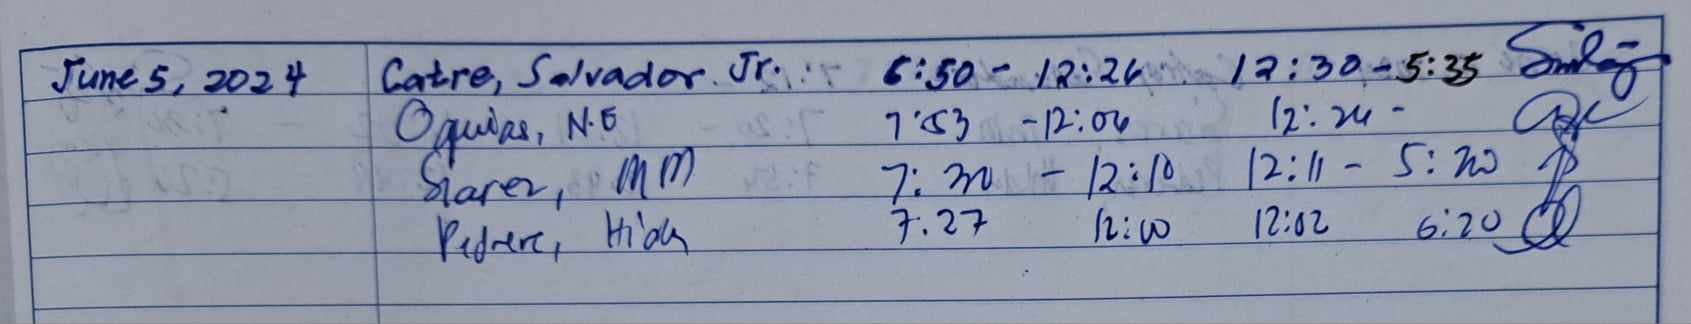 June 5, 2024 Catre, Salvador Jr. 6:50 - 12:26 12:30 - 5:35
Oquias, N.E 7:53 - 12:06 12:24 -
MM 7:30 - 12:10 12:11 - 5:20
7:27 12:00 12:02 6:20